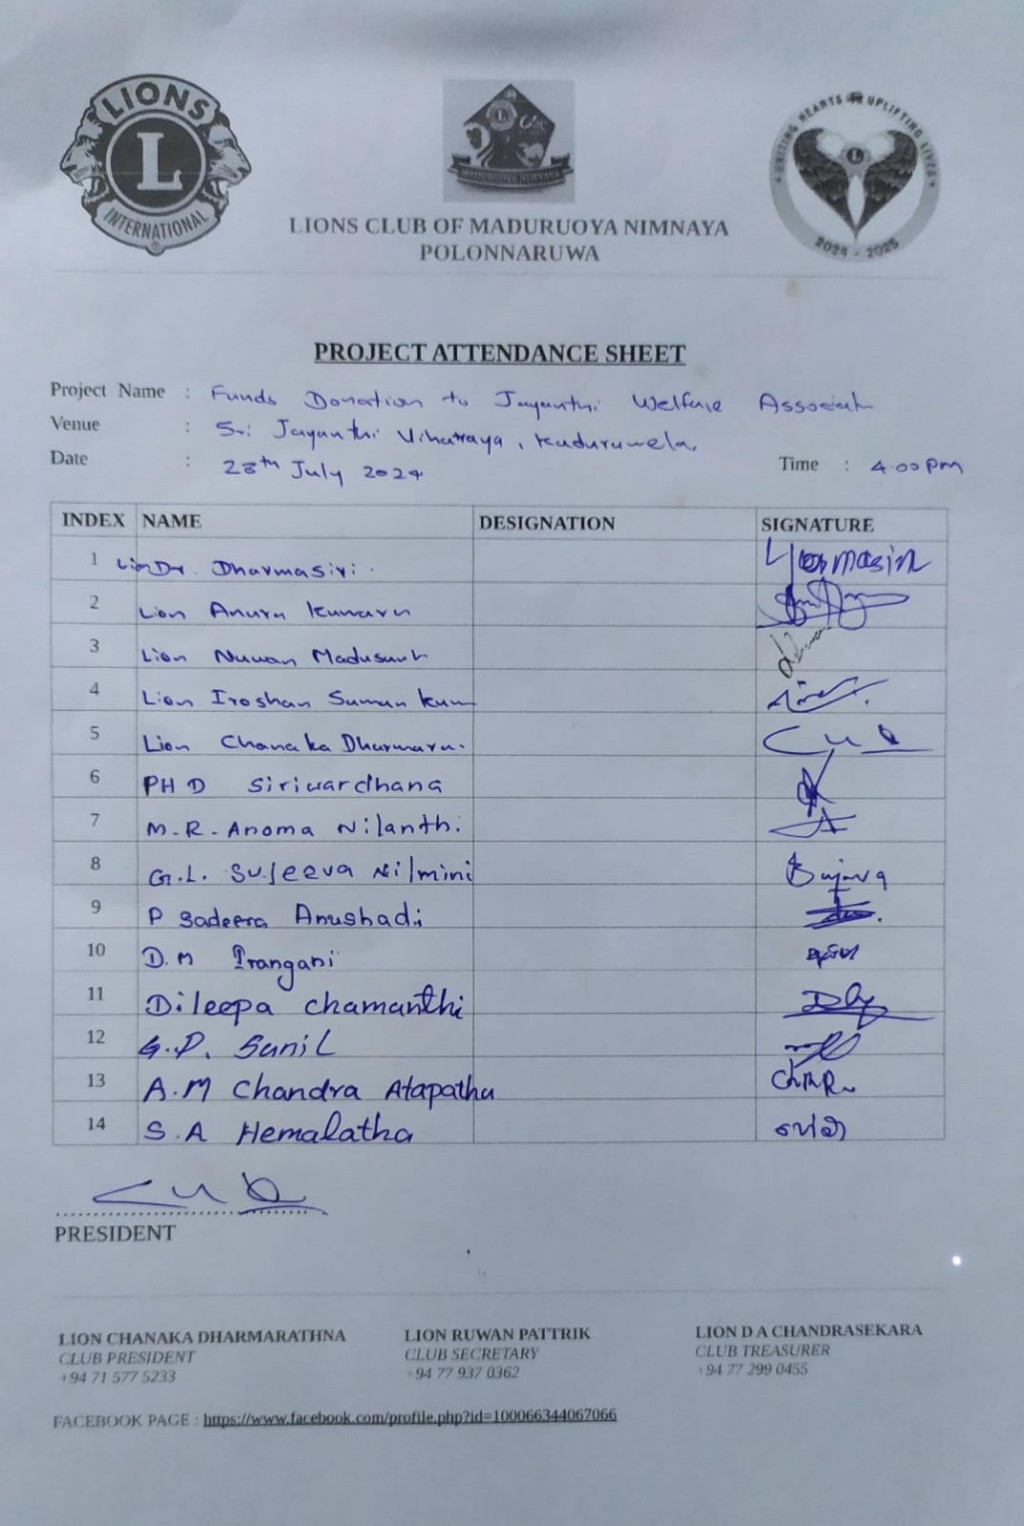 LIONS
L
INTERNATIONAL
MADURUOYA NIMNAYA
UNITING HEARTS UPLIFTING LIVES
2024 - 2025
LIONS CLUB OF MADURUOYA NIMNAYA
POLONNARUWA
PROJECT ATTENDANCE SHEET
Project Name : Funds Donation to Jayanthi Welfare
Venue : Sri Jayanthi Viharaya, Kaduruwela,
Date : 28th July 2024 Time : 4.00 pm
INDEX NAME DESIGNATION SIGNATURE
1 Lion Dr. Dharmasiri.
2 Lion Anura Kumara
3 Lion Nuwan
4 Lion Iroshan Suman Kum
5 Lion Chanaka
6 PH D Siriwardhana
7 M.R. Anoma Nilanthi
8 G.L. Sujeeva Nilmini
9 P Sadeera Anushadi
10 D.M Irangani
11 Dileepa Chamanthi
12 G.P. Sunil
13 A.M Chandra Atapathu
14 S.A Hemalatha
PRESIDENT
LION CHANAKA DHARMARATHNA LION RUWAN PATTRIK LION D A CHANDRASEKARA
CLUB PRESIDENT CLUB SECRETARY CLUB TREASURER
+94 71 577 5233 +94 77 937 0362 +94 77 299 0455
FACEBOOK PAGE : https://www.facebook.com/profile.php?id=100066344067066